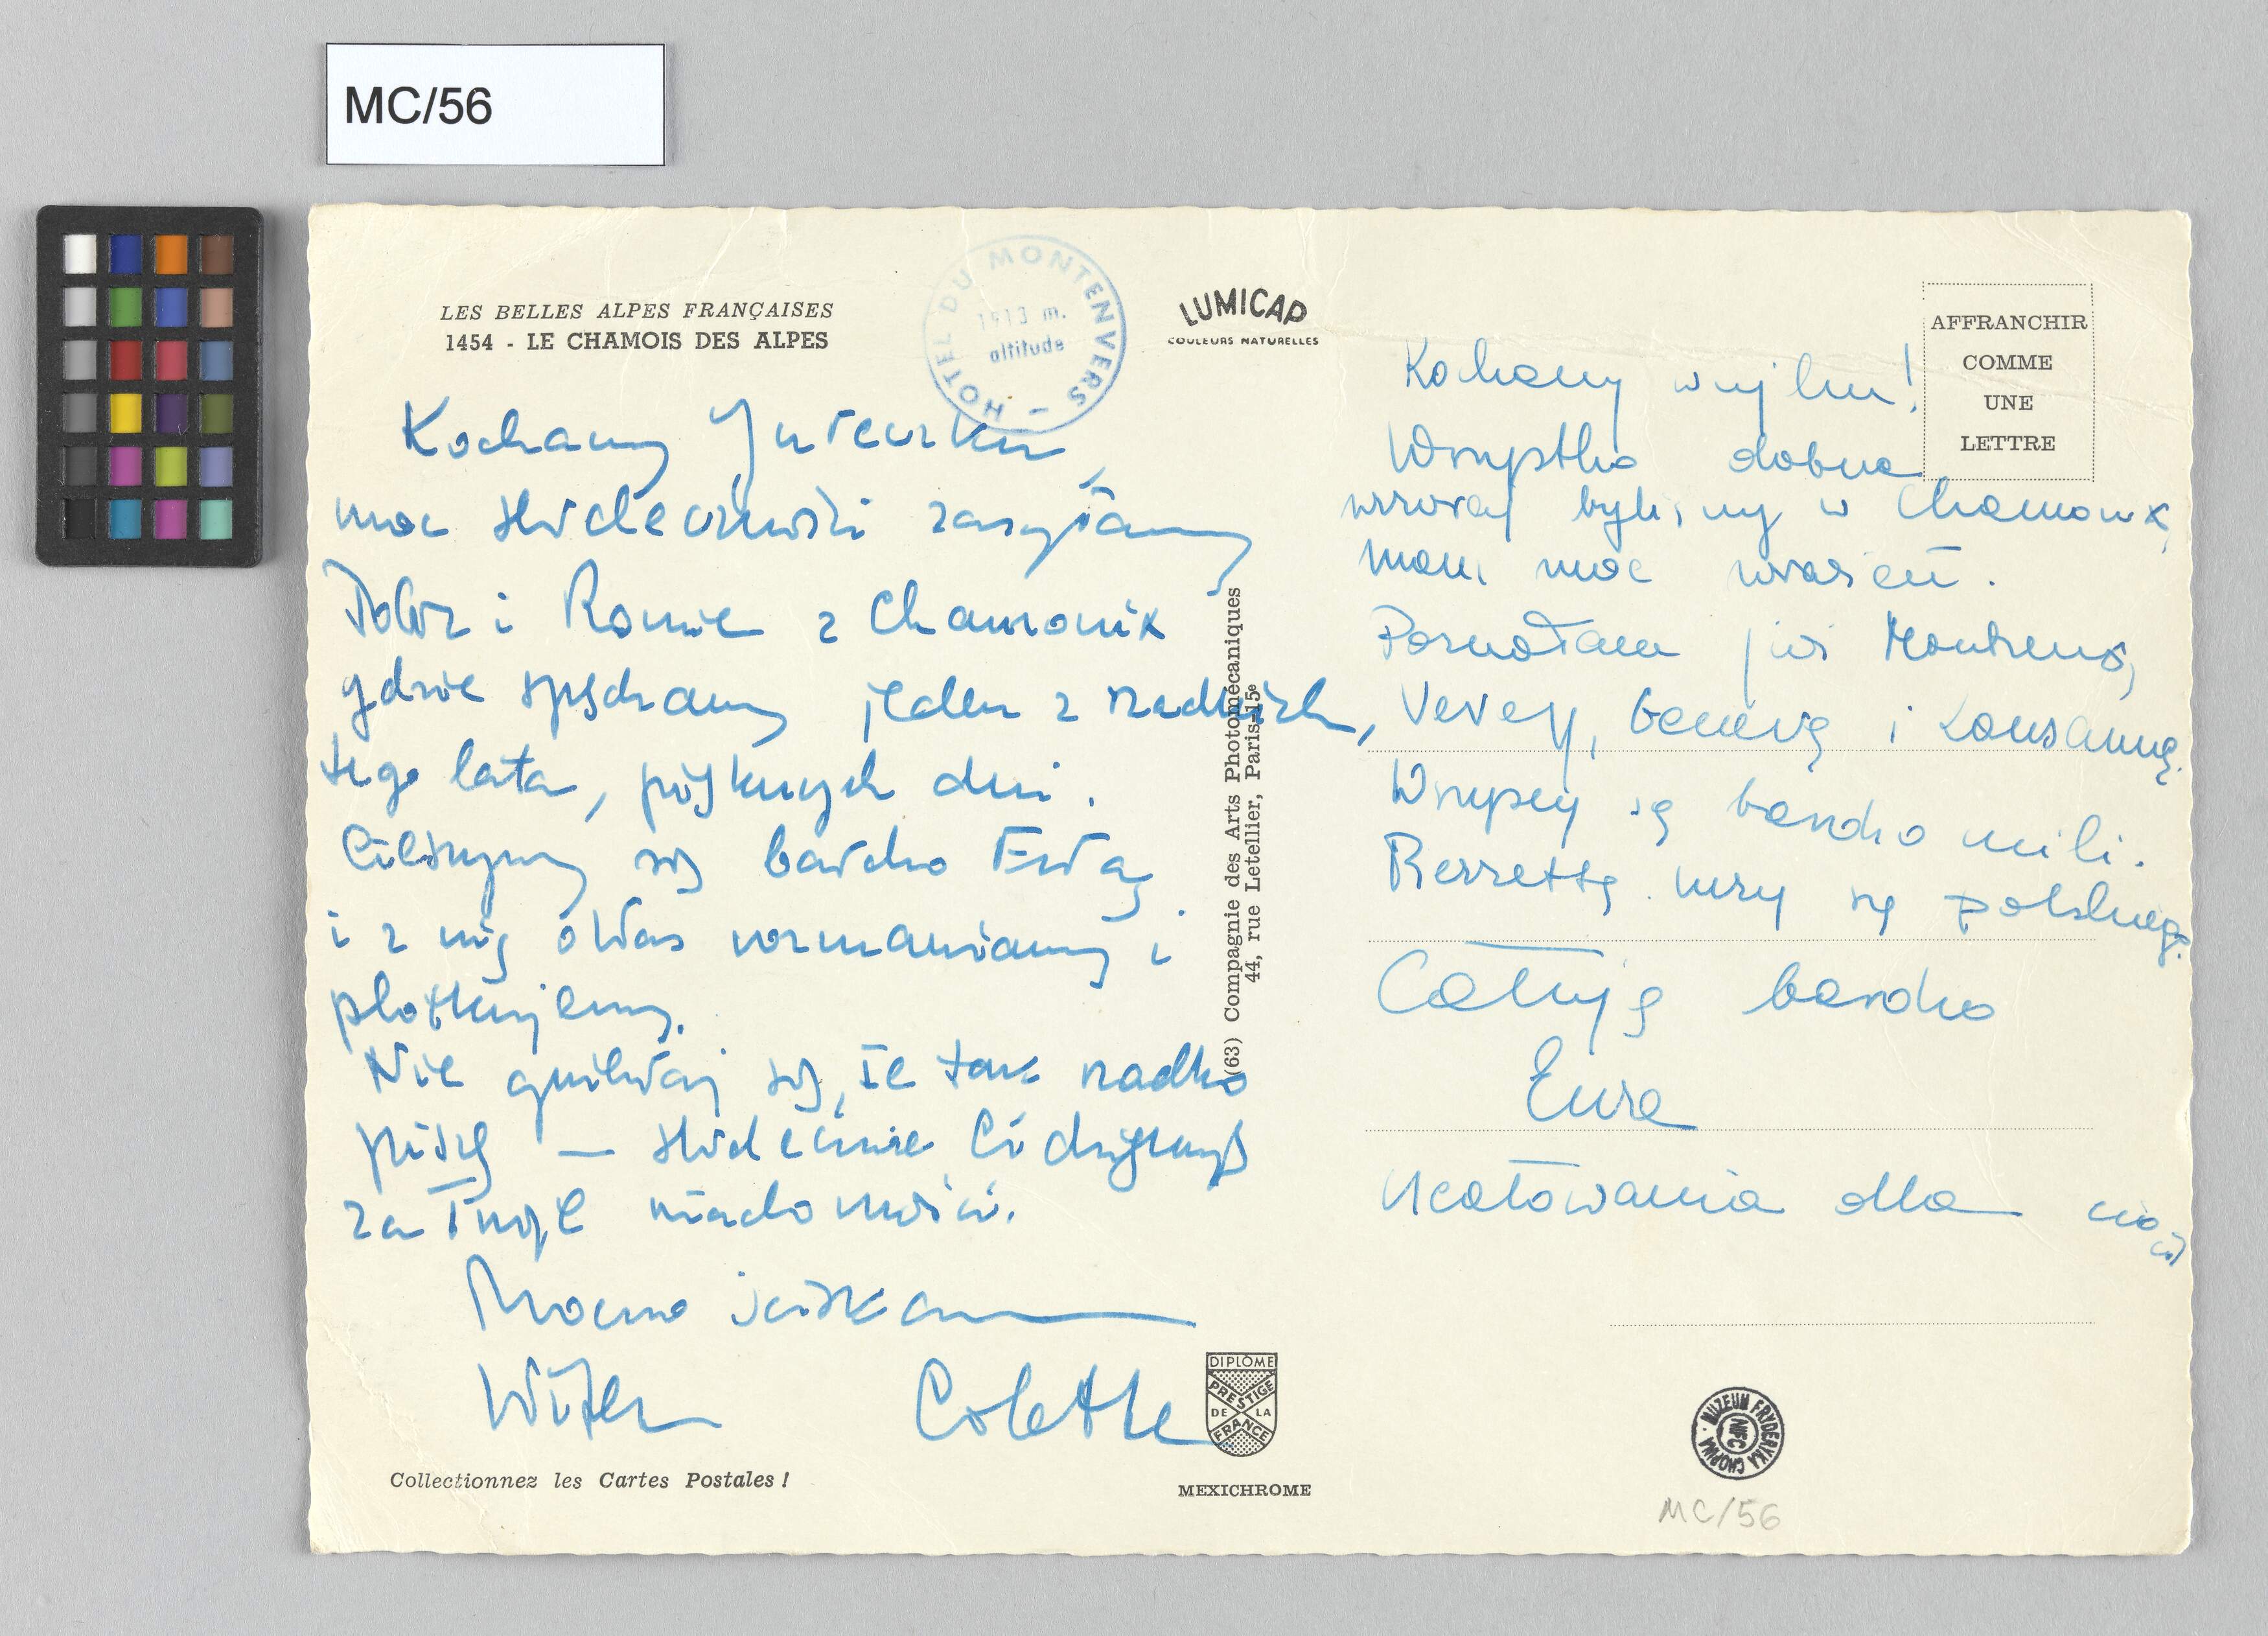 MC/56
LES BELLES ALPES FRANÇAISES
1454 - LE CHAMOIS DES ALPES
HOTEL DU MONTENVERS -
1913 m.
altitude
LUMICAP
COULEURS NATURELLES
AFFRANCHIR
COMME
UNE
LETTRE
Kochany Jureczku,
moc serdeczności zasyłamy
Tobie i Romie z Chamonix
gdzie spędzamy jeden z rzadkich,
tego lata, pięknych dni.
Cieszymy się bardzo Ewą
i z nią o Was rozmawiamy i
plotkujemy.
Nie gniewaj się, że tak rzadko
piszę — serdecznie Ci dziękuję
za Twoje wiadomości.
Mocno ściskam
Witek Colette
Collectionnez les Cartes Postales !
(63) Compagnie des Arts Photomécaniques
44, rue Letellier, Paris-15e
DIPLÔME
PRESTIGE
DE LA
FRANCE
MEXICHROME
Kochany wujku!
Wszystko dobrze
wczoraj byliśmy w Chamonix,
mam moc wrażeń.
Poznałam już Montreux,
Vevey, Genewę i Lousannę.
Wszyscy są bardzo mili.
Pierrette uczy się polskiego.
Całuję bardzo
Ewa
Ucałowania dla cioci
MUZEUM FRYDERYKA CHOPINA
NIFC
MC/56